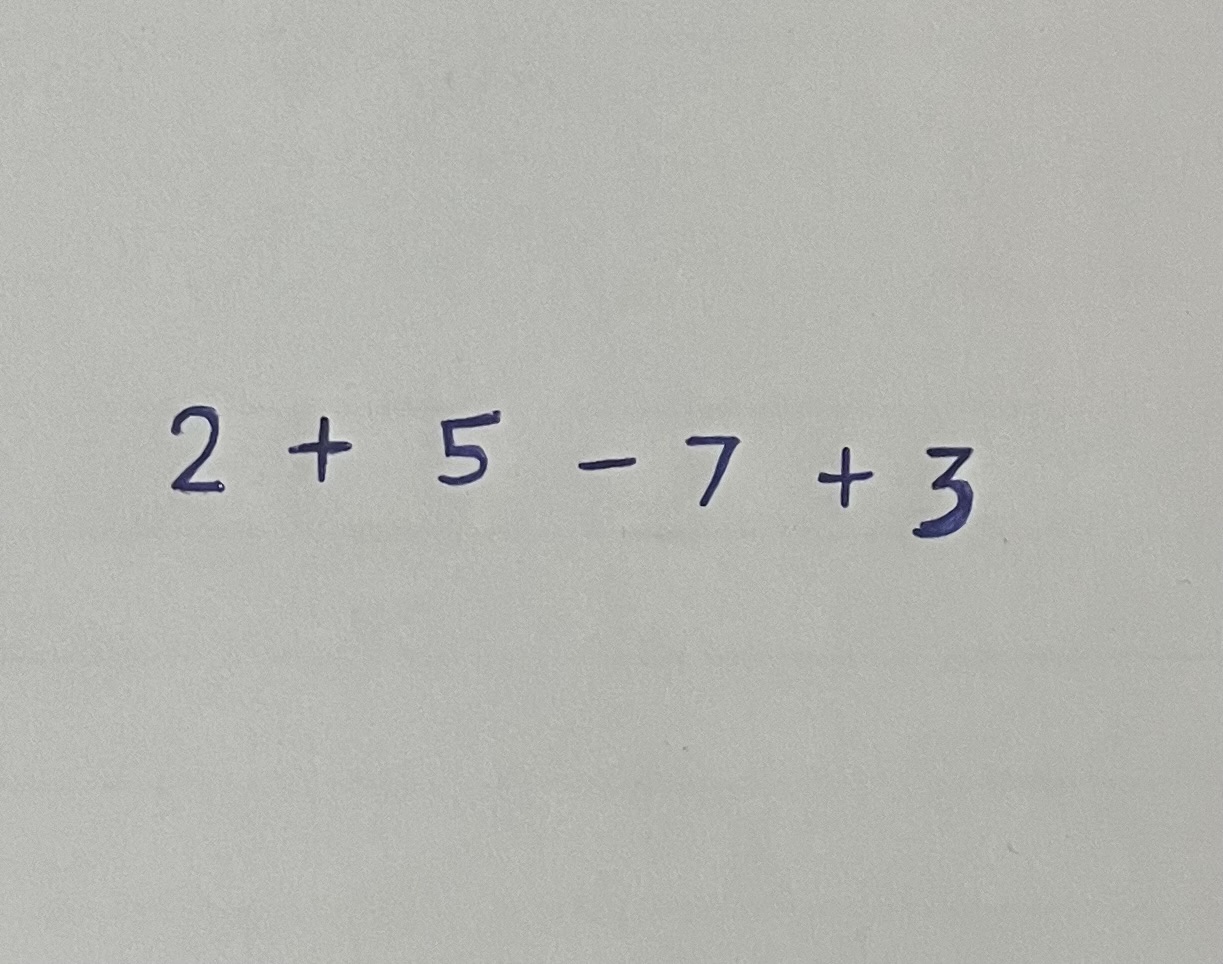 2 + 5 - 7 + 3